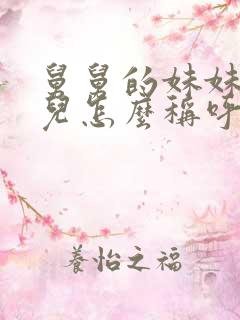 舅舅的妹妹
兒怎麼稱呼
養怡之福